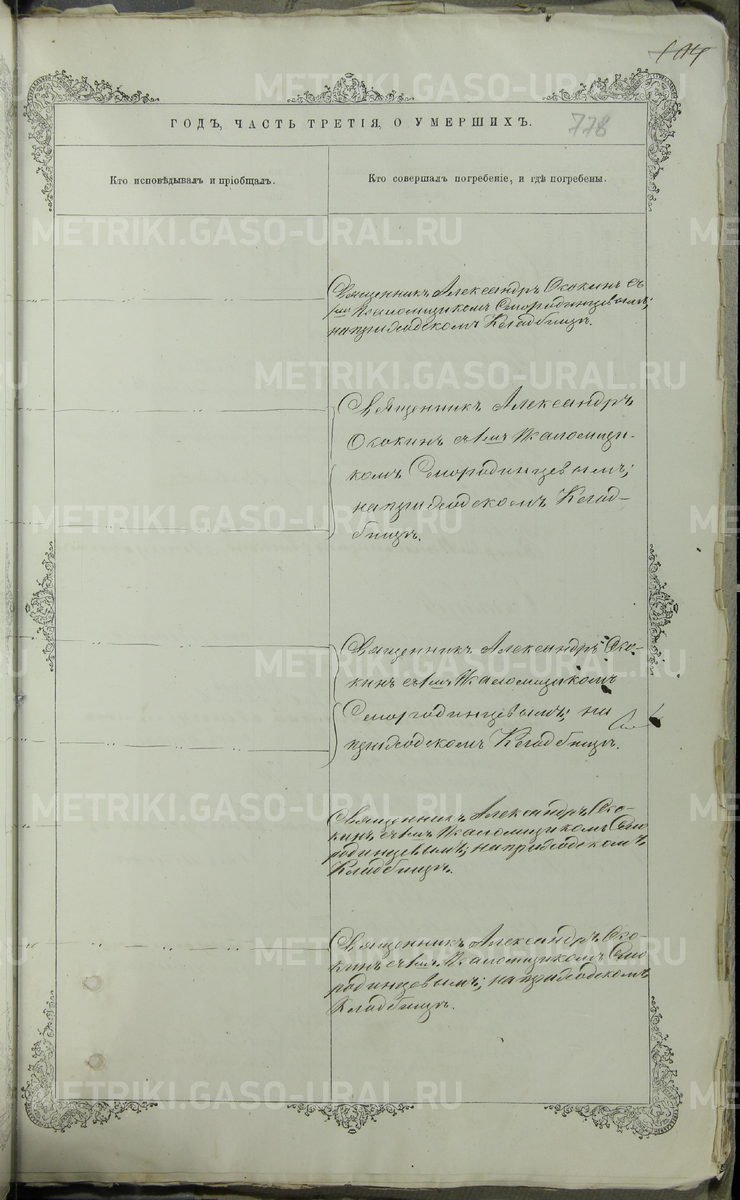 778
ГОДЪ, ЧАСТЬ ТРЕТІЯ, О УМЕРШИХЪ.
Кто исповѣдывалъ и пріобщалъ.
Кто совершалъ погребеніе, и гдѣ погребены.
Священникъ Александръ Ококинъ съ
Псаломщикомъ Смородинцевымъ;
на приходскомъ Кладбищѣ.
Священникъ Александръ
Ококинъ съ Псаломщи-
комъ Смородинцевымъ;
на приходскомъ Клад-
бищѣ.
Священникъ Александръ Око-
кинъ съ Псаломщикомъ
Смородинцевымъ; на
приходскомъ Кладбищѣ.
Священникъ Александръ Око-
кинъ съ Псаломщикомъ Смо-
родинцевымъ; на приходскомъ
Кладбищѣ.
Священникъ Александръ Око-
кинъ съ Псаломщикомъ Смо-
родинцевымъ; на приходскомъ
Кладбищѣ.
METRIKI.GASO-URAL.RU